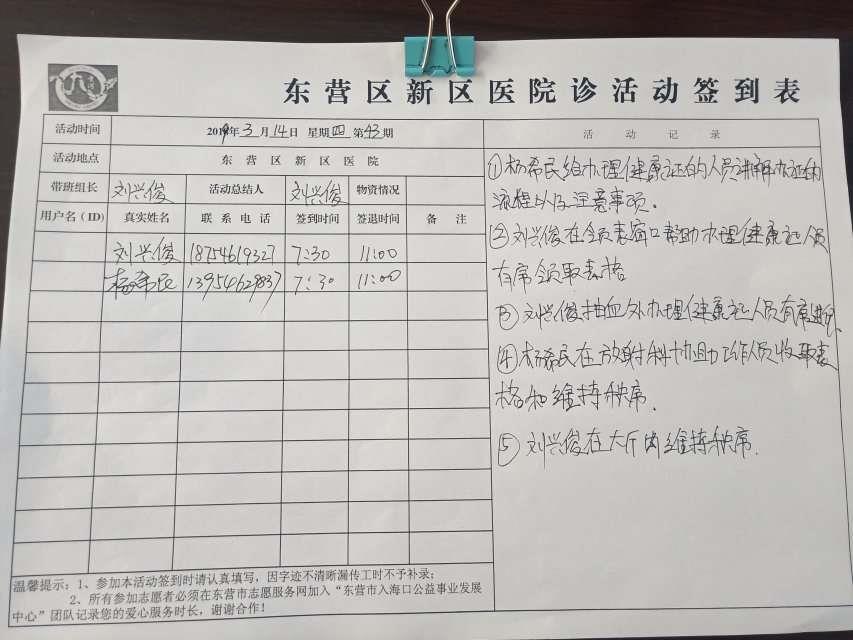 东营区新区医院诊活动签到表
活动时间 2019年3月14日 星期四 第43期 活动记录
活动地点 东营区新区医院
带班组长 刘兴俊 活动总结人 刘兴俊 物资情况
用户名(ID) 真实姓名 联系电话 签到时间 签退时间 备注
刘兴俊 18754619327 7:30 11:00
杨希民 13954629837 7:30 11:00
①杨希民给办理健康证的人员讲解办证的
流程以及注意事项.
②刘兴俊在领表窗口帮助办理健康证人员
有序领取表格
③刘兴俊抽血处办理健康证人员有序进行.
④杨希民在放射科协助工作人员收取表
格和维持秩序.
⑤刘兴俊在大厅内维持秩序.
温馨提示:1、参加本活动签到时请认真填写,因字迹不清晰漏传工时不予补录;
2、所有参加志愿者必须在东营市志愿服务网加入“东营市入海口公益事业发展
中心”团队记录您的爱心服务时长,谢谢合作!